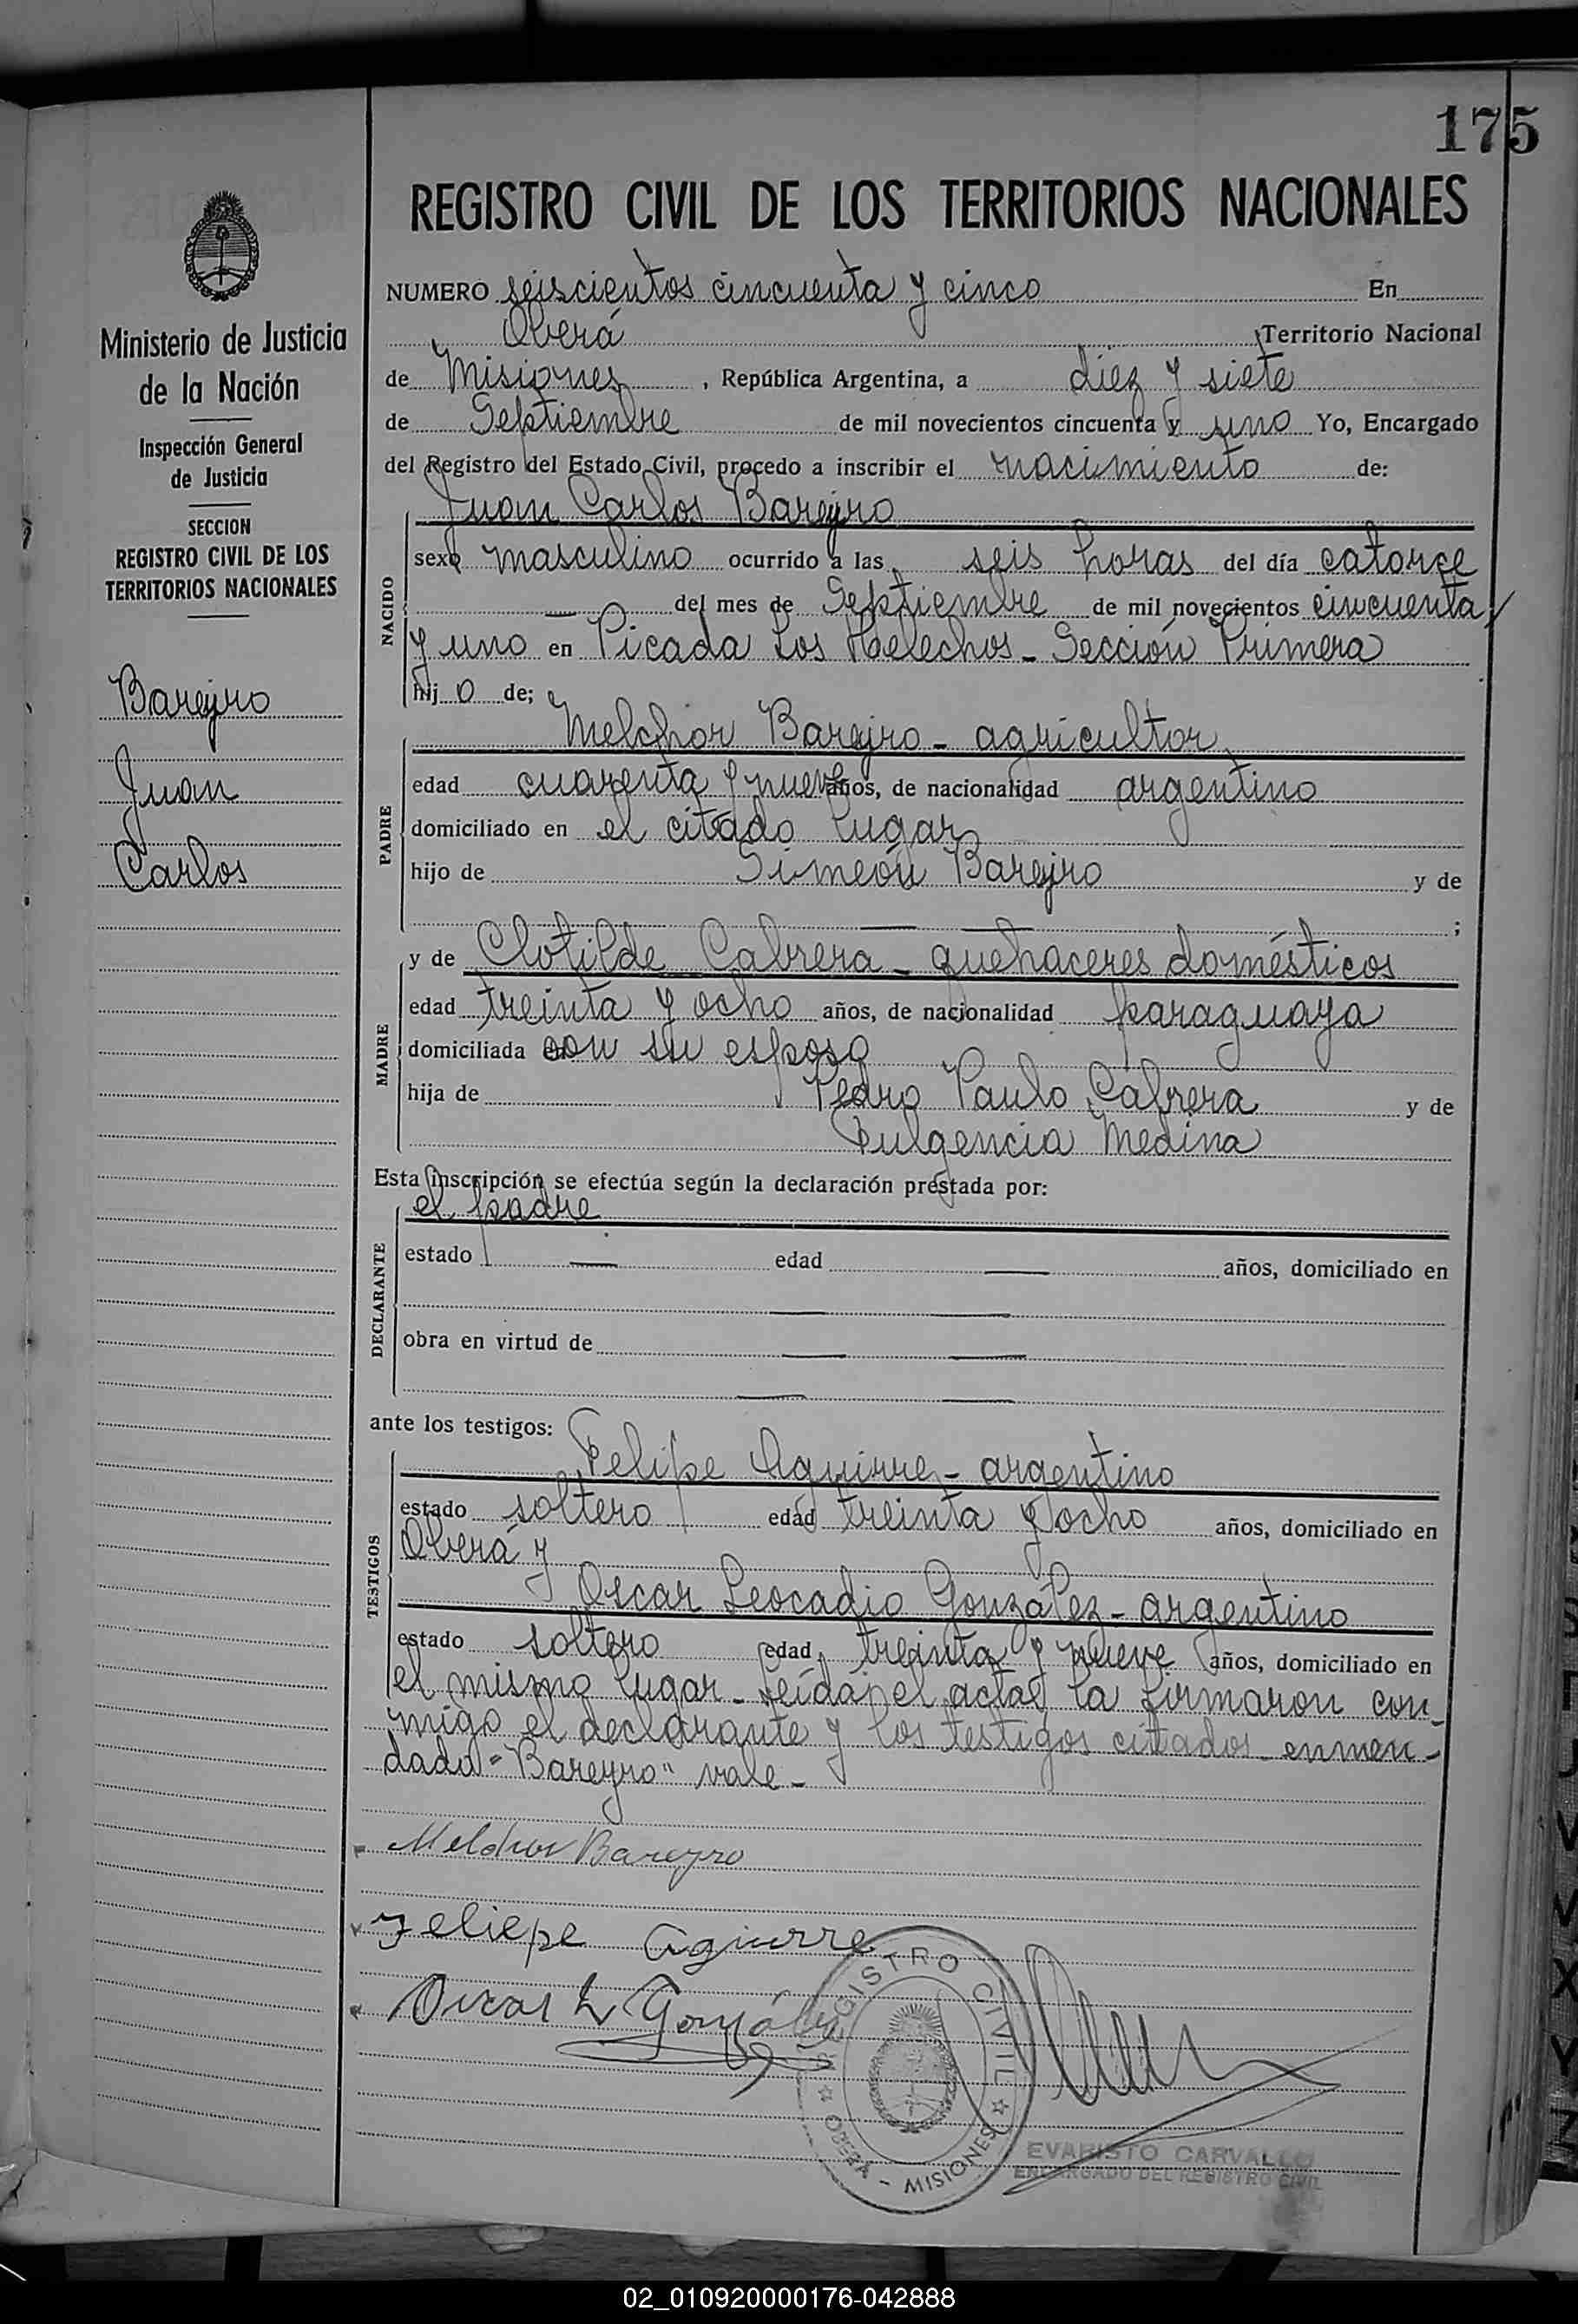 175
REGISTRO CIVIL DE LOS TERRITORIOS NACIONALES
Ministerio de Justicia
de la Nación
Inspección General
de Justicia
SECCION
REGISTRO CIVIL DE LOS
TERRITORIOS NACIONALES
Bareyro
Juan
Carlos
NUMERO seiscientos cincuenta y cinco En
Oberá Territorio Nacional
de Misiones, República Argentina, a diez y siete
de Septiembre de mil novecientos cincuenta y uno Yo, Encargado
del Registro del Estado Civil, procedo a inscribir el nacimiento de:
NACIDO
Juan Carlos Bareyro
sexo masculino ocurrido a las seis horas del día catorce
— del mes de Septiembre de mil novecientos cincuenta
y uno en Picada Los Helechos - Sección Primera
hijo de;
PADRE
Melchor Bareyro - agricultor
edad cuarenta y nueve años, de nacionalidad argentino
domiciliado en el citado lugar
hijo de Simeón Bareyro y de
— — ;
MADRE
y de Clotilde Cabrera - quehaceres domésticos
edad treinta y ocho años, de nacionalidad paraguaya
domiciliada con su esposo
hija de Pedro Paulo Cabrera y de
Fulgencia Medina
Esta inscripción se efectúa según la declaración prestada por:
DECLARANTE
el padre
estado — edad — años, domiciliado en
— —
obra en virtud de — —
— —
ante los testigos:
TESTIGOS
Felipe Aguirre - argentino
estado soltero edad treinta y ocho años, domiciliado en
Oberá y
Oscar Leocadio González - argentino
estado soltero edad treinta y nueve años, domiciliado en
el mismo lugar - Leída el acta la firmaron con-
migo el declarante y los testigos citados - enmen-
dado "Bareyro" vale -
Melchor Bareyro
Feliepe Aguirre
Oscar L González
REGISTRO CIVIL
OBERA - MISIONES
EVARISTO CARVALLO
ENCARGADO DEL REGISTRO CIVIL
02_010920000176-042888